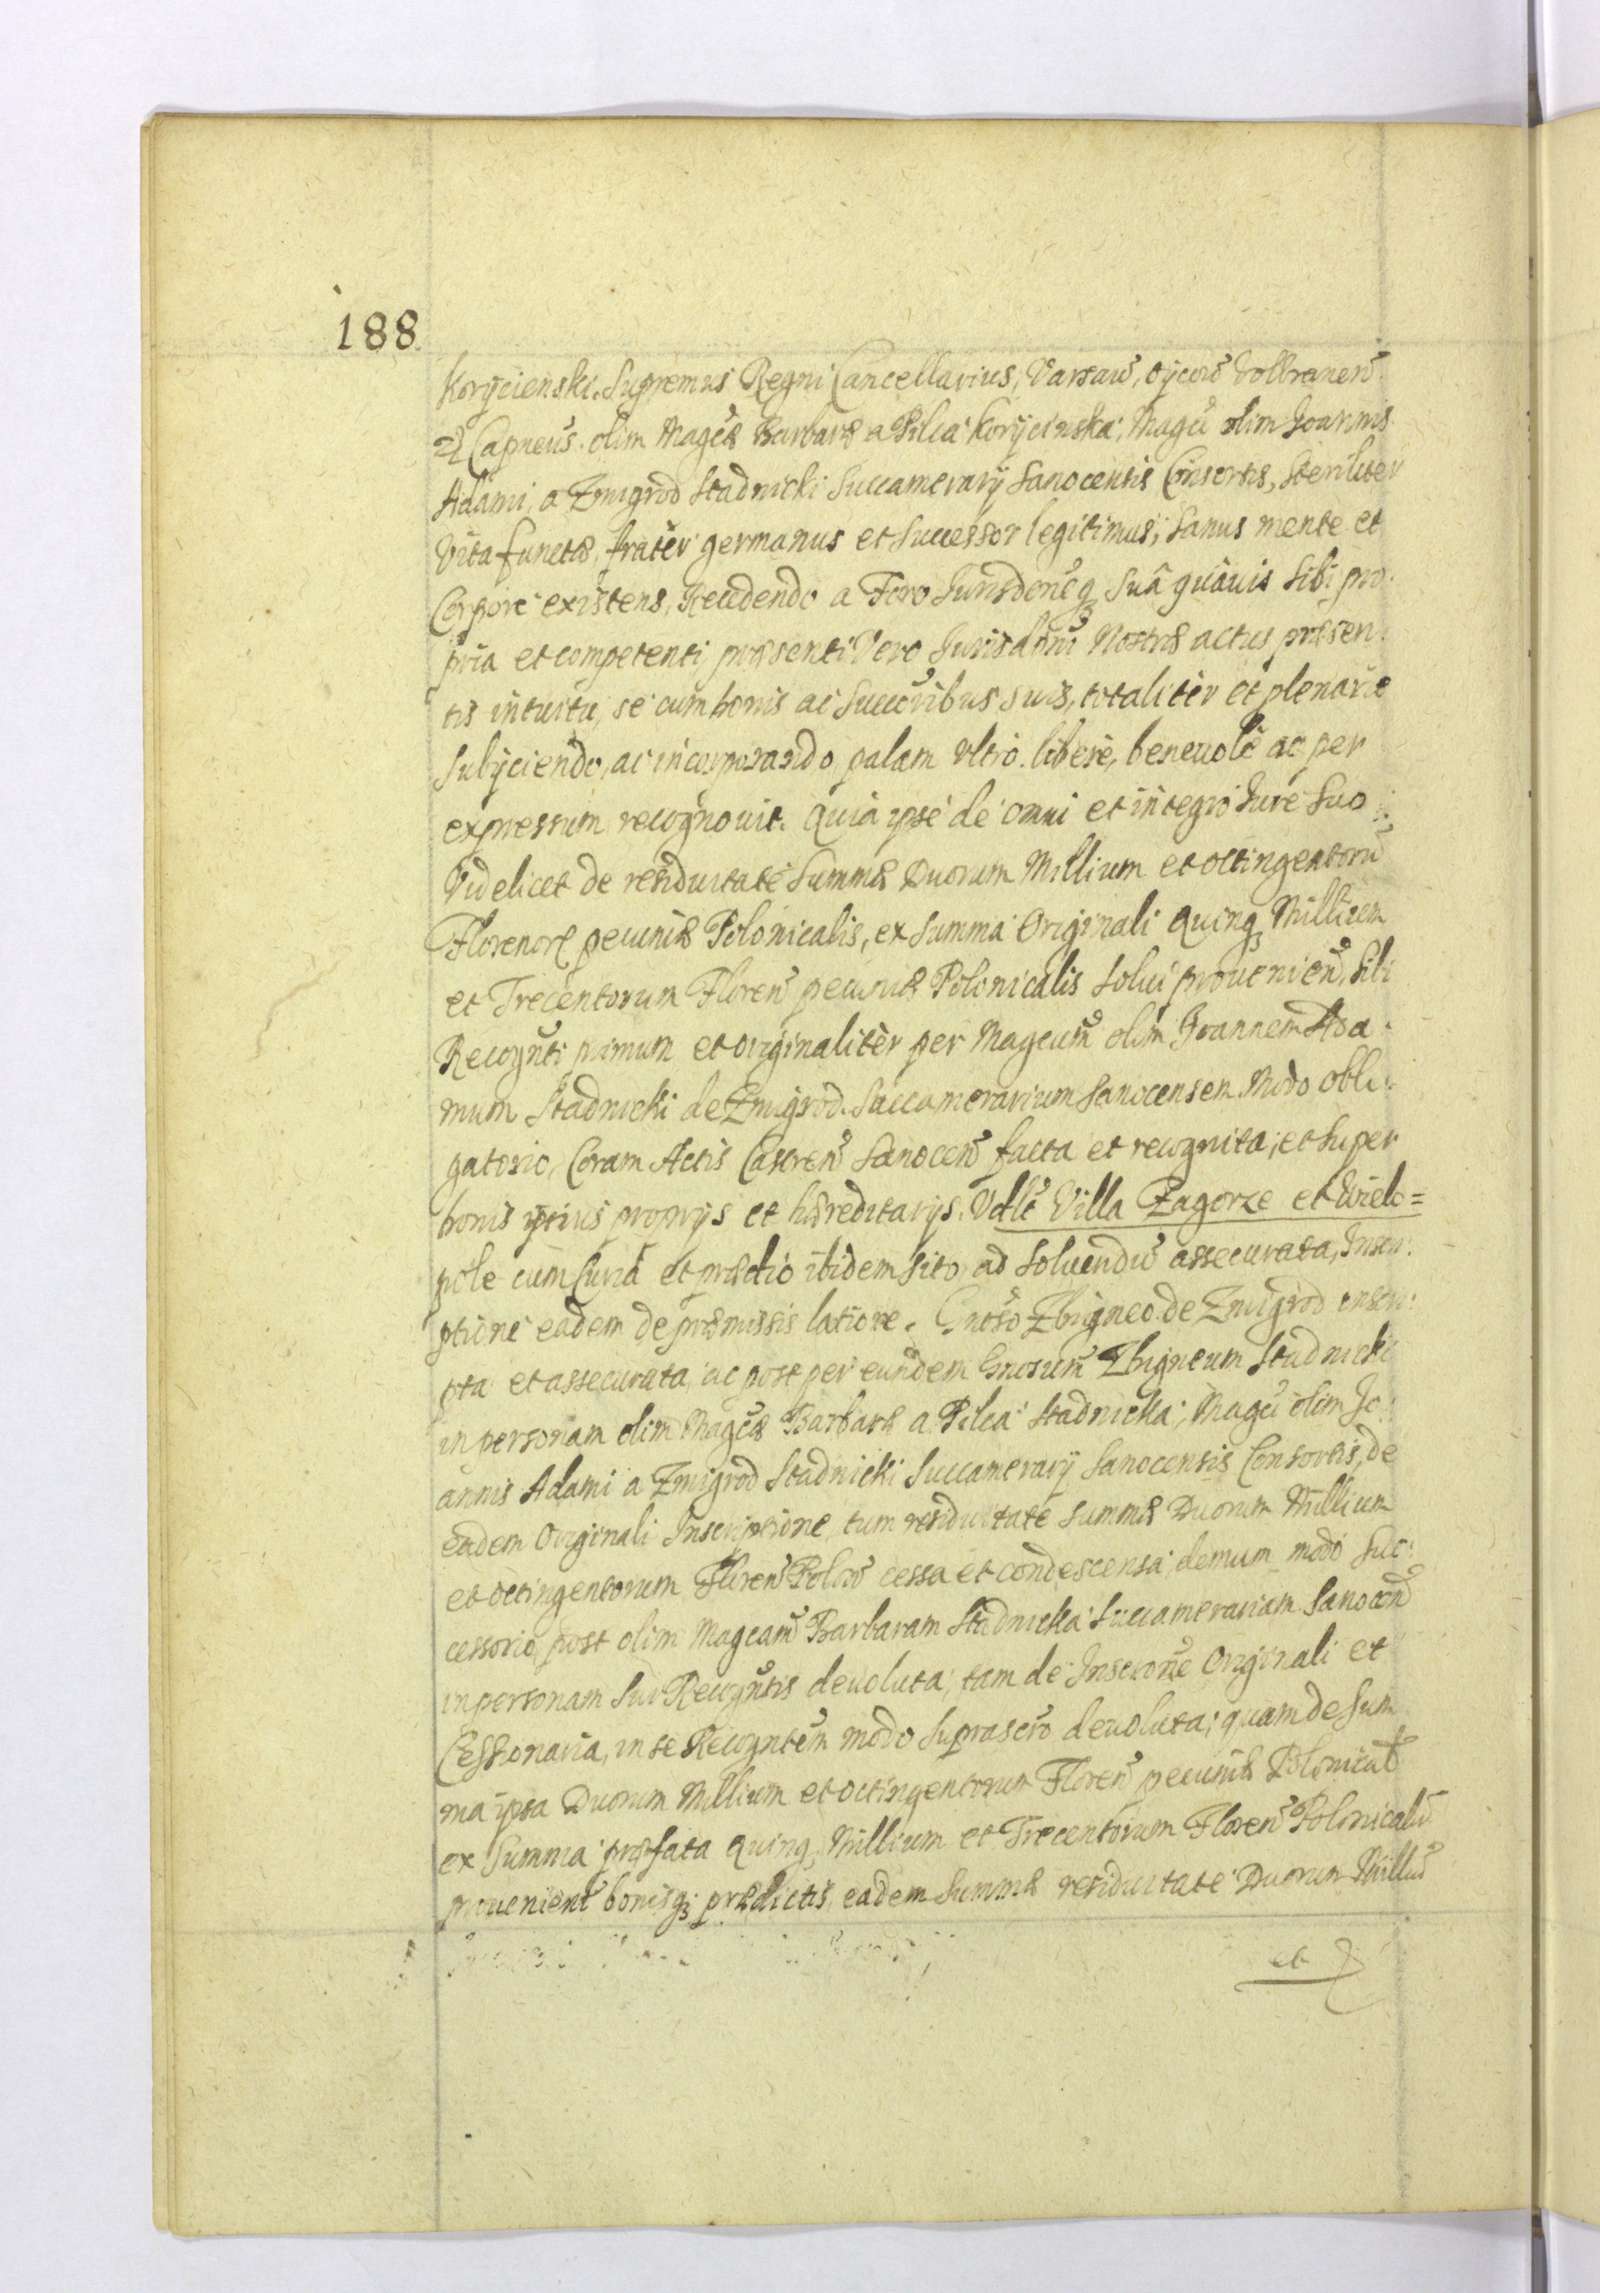 188
Korÿcienski. Supremus Regni Cancellarius, Varsaw̃, Oÿcow̃ Volbramen̄
Capneus. olim Magc̃æ Barbaræ a Pilca Korÿcinska, Magc̃i olim Joannis
Adami, a Zmigrod Stadnicki Succamerarÿ Sanocensis Consortis, steriliter
Vita functæ, frater germanus et Successor legitimus; Sanus mente et
Corpore existens, Recedendo a Foro Jurisdoneq̃ suâ quâuis sibi pro:
pria et competenti, præsenti Vero Jurisdõni Nostræ actus præsen:
tis intuitu, se cum bonis ac succõribus suis, totaliter et plenarie
Subÿciendo, ac incorporando palam vltro. liberè, beneuolè ac per
expressum recognouit. Quia ipse de omni et integro Jure suo
Videlicet de residuitate Summæ Duorum Millium et octingentorũ
Florenor̃ pecuniæ Polonicalis, ex summa Originali Quinq̃ Millium
et Trecentorum Floren̄ pecuniæ Polonicalis solui prouenien̄, sibi
Recogn̄ti primum et originalitèr per Magcum̃ olim Joannem Ada:
mum Stadnicki de Zmigrod. Succamerarium Sanocensem Modo obli:
gatorio, Coram Actis Castren̄ Sanocen̄ facta et recognita; et super
bonis ip̃ius proprÿs et hæreditarÿs. Vdlt̃ Villa Zagorze et Wielo=
pole cum Curiâ et prædio ibidem sito, ad soluendũ assecurata, Inscri:
ptione eadem de præmissis latiore. Gnõso Zbigneo de Zmigrod inscri:
pta et assecurata, ac post per eundem Gnosum̃ Zbigneum Stadnicki
in personam olim Magc̃æ Barbaræ a Pilca Stadnicka, Magc̃i olim Jo:
annis Adami a Zmigrod Stadnicki Succamerarÿ Sanocensis Consortis, de
eadem Originali Inscriptione, tum residuitate summæ Duorum Millium
et octingentorum Floren̄ Polon̄ cessa et condescensa; demum modo suc:
cessorio, post olim Magcam̃ Barbaram Stadnicka Succamerariam Sanocen̄
in personam sui Recogn̄tis deuoluta; tam de Inscrõne Originali et
Cessionaria, in se Recogn̄tem modo suprascr̃o deuoluta; quam de Sum
ma ipsa Duorum Millium et octingentorum Floren̄ pecuniæ Polonical̃
ex summa præfata Quinq̃ Millium et Trecentorum Floren̄ Polonicaliũ
prouenien̄ bonisq̃ prædictis, eadem Summæ residuitate Duorum Milliũ
et